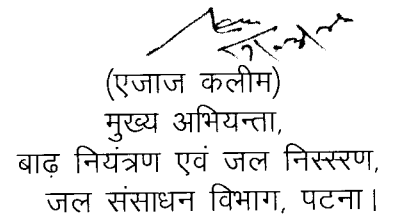 (एजाज कलीम)
मुख्य अभियन्ता,
बाढ़ नियंत्रण एवं जल निस्सरण,
जल संसाधन विभाग, पटना।